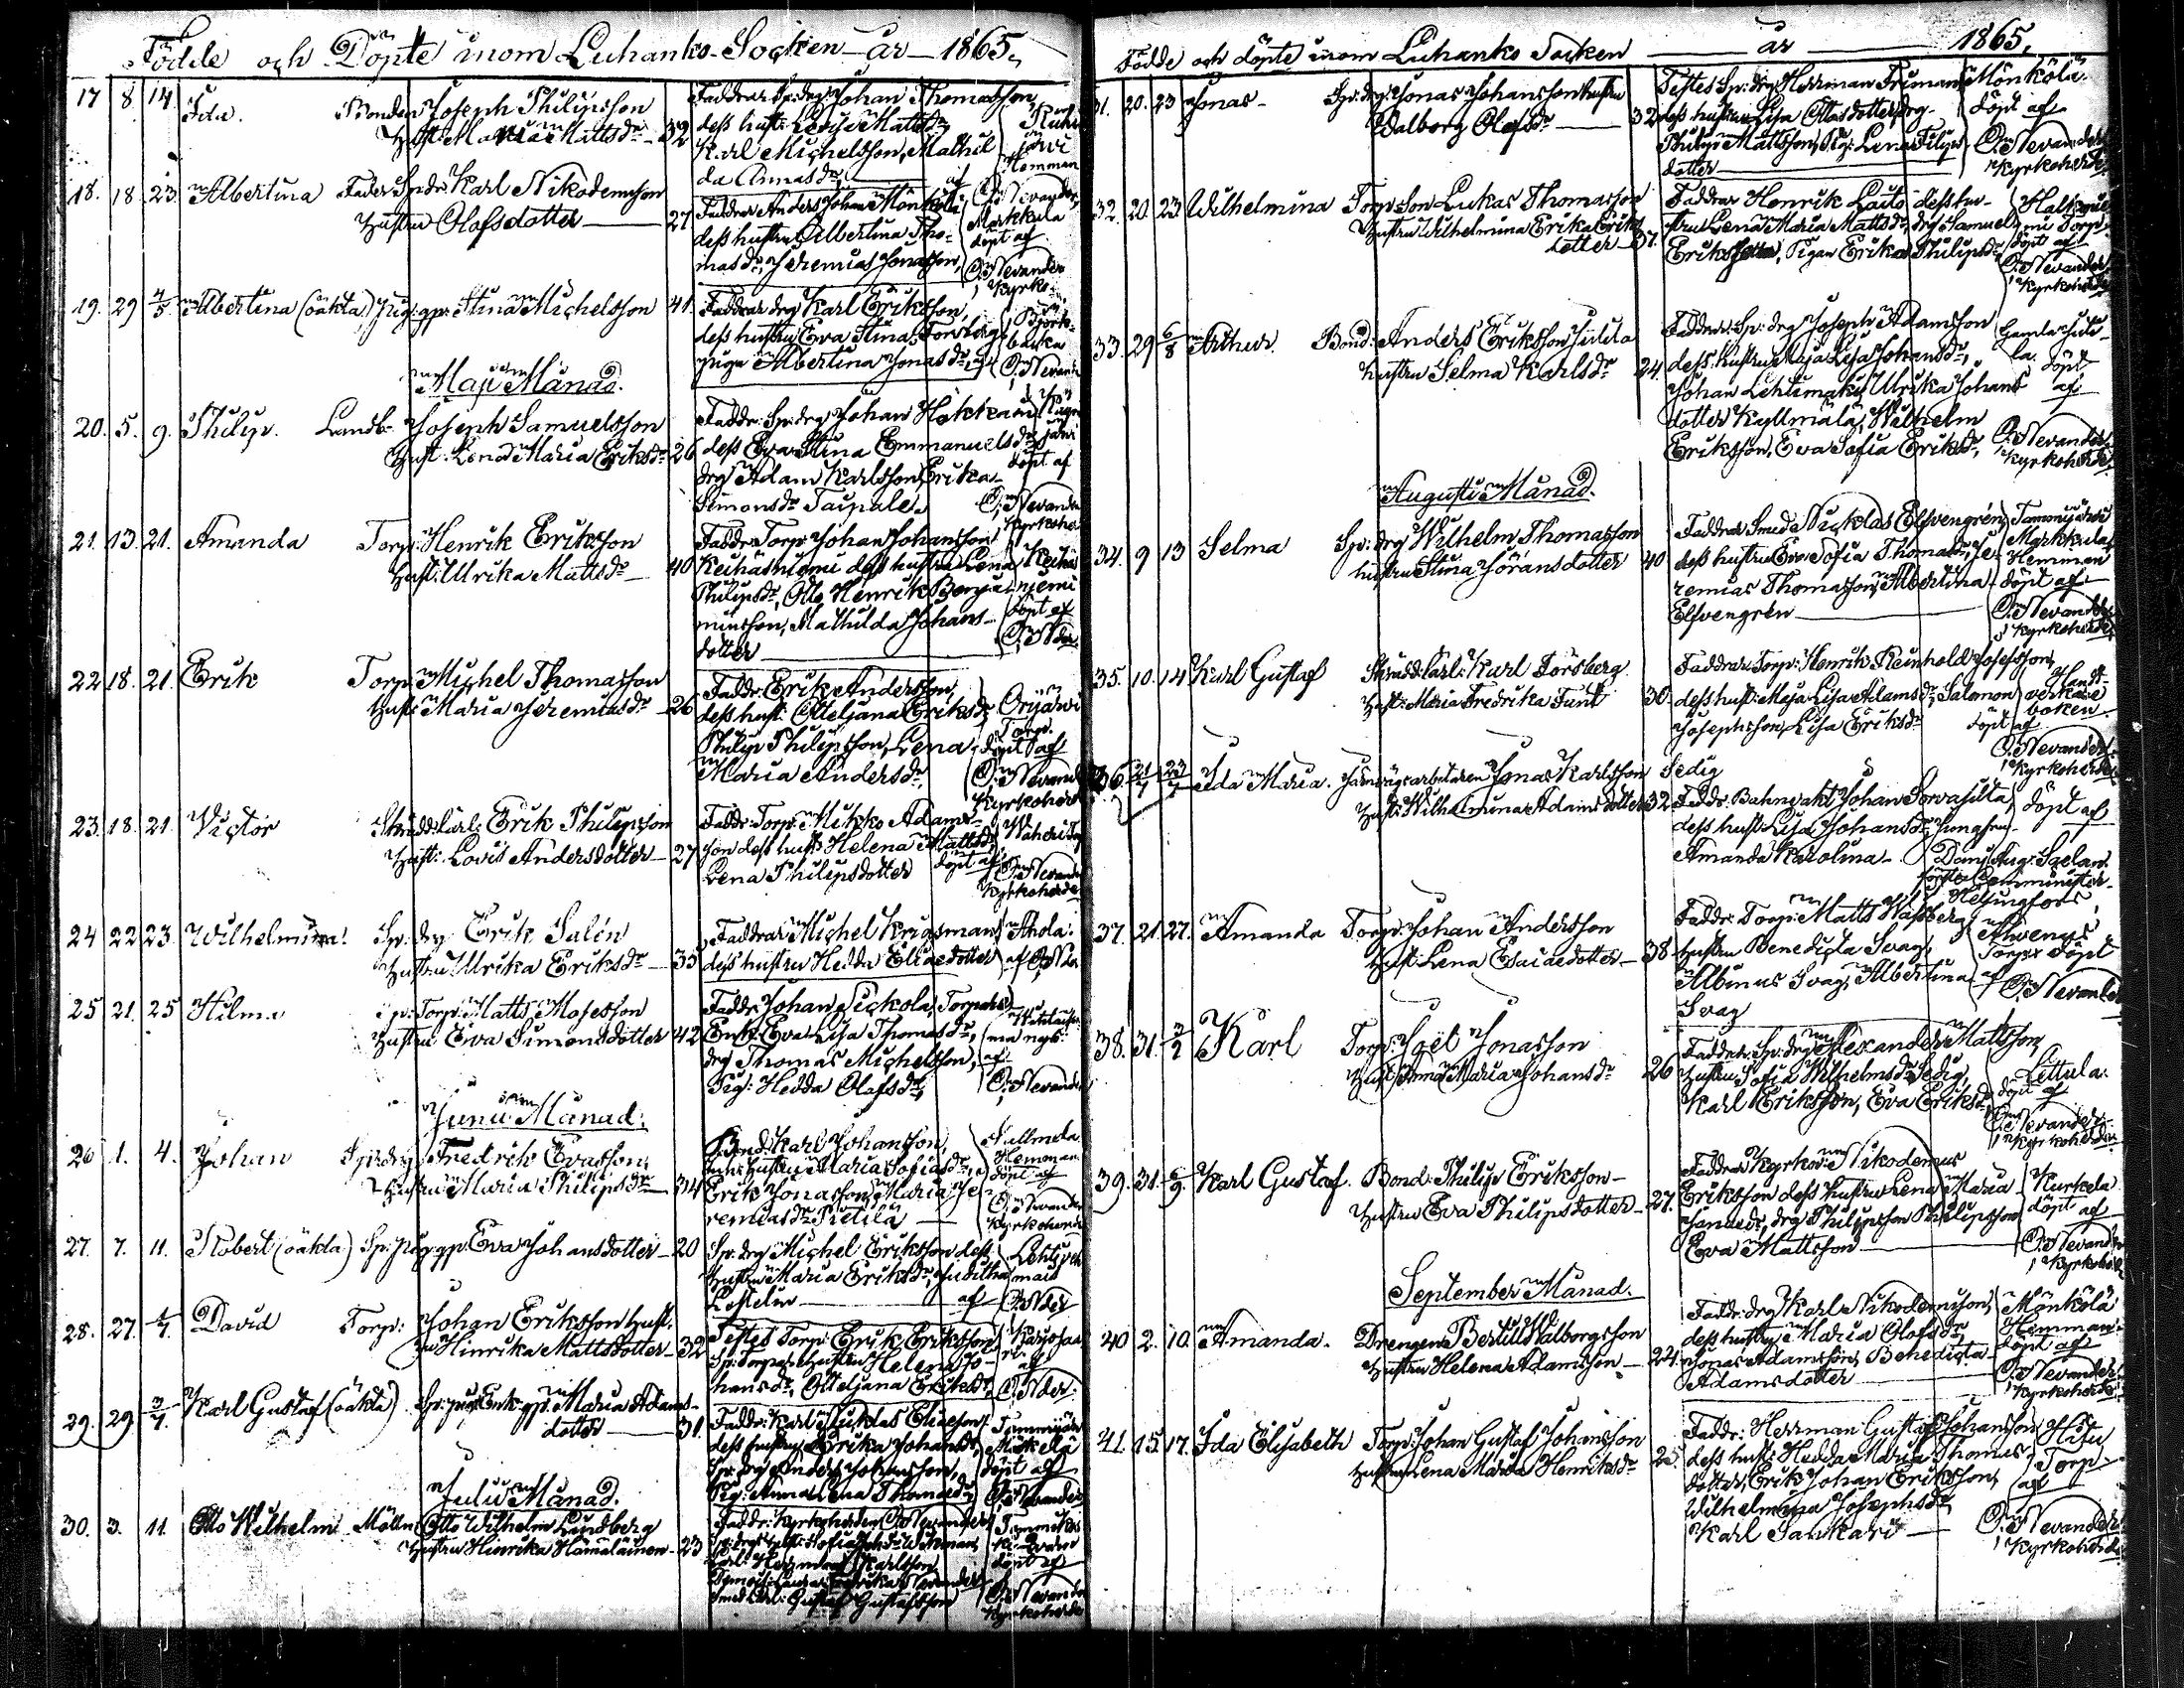 Födde och Döpte inom Luhanko Socken år 1865.
17 8 14 Ida. Bonden Joseph Philipsson
Hust: Maria Mattsdr 32
Faddrar Sp: drg Johan Thomasson
dess hust: Lovisa Mattsdr
Karl Michelsson, Mathil
da Annasdr
Hemman
18. 18 23. Albertina Fader Sp: dr Karl Nikodemsson
Hustru Olofsdotter 27
Faddrar Anders Johan Mönkölä
dess hustru Albertina Tho-
masdr, Jeremias Jonasson,
Markkula
döpt af
O. Nevander
Kyrko
19. 29 4/5 Albertina (oäkta) Pig: gp: Stina Michelsson 41.
Faddrar drg Karl Eriksson,
dess hustru Eva Stina Forsberg
Piga Albertina Jonasdr
O. Nevand
Maji Månad.
20. 5. 9. Philip. Landb: Joseph Samuelsson
Hust: Lena Maria Eriksdr 26
Faddr: Sp: drg Johan Hokkanen
dess Eva Stina Emmanuelsdr
drg Adam Karlsson, Erika
Simonsdr Taipale.
döpt af
O. Nevander
Kyrkoher
21. 13. 21. Amanda Torp: Henrik Eriksson
Hust: Ulrika Mattsdr 40
Faddr: Torp: Johan Johansson
Keihäsniemi dess hustru Lena
Philipsdr, Otto Henrik Benja-
minsson, Mathilda Johans-
dotter
Keihäs
niemi
döpt af
O. Nder
22 18. 21. Erik Torp: Michel Thomasson
Hust: Maria Jeremiasdr 26
Faddr: Erik Andersson,
dess hust: Otteljana Eriksdr
Philip Philipsson, Lena
Maria Andersdr
Oryärwi
Torp.
döpt af
O. Nevand
Kyrkoherd
23. 18. 21. Victor Skrädd: Karl: Erik Philipsson
Hust: Lovis Andersdotter 27
Faddr: Torp: Mikko Adams-
son dess hust: Helena Mattsdr
Lena Philipsdotter döpt af
O. Nevand
Kyrkoherde
24 22 23. Wilhelmina. Sp: drg Erik Salén
Hustru Ulrika Eriksdr 35
Faddrar Michel Krigsman
dess hustru Hedda Eliaedotter
25 21. 25 Hilma Sp: Torp: Matts Mosesson
Hustru Eva Simonsdotter 42
Faddr: Johan Sickola, Torpare
Enk: Eva Lisa Thomasdr,
drg Thomas Michelsson,
Pig: Hedda Olofsdr,
af
O. Nevand
Junii Månad.
26 1. 4. Johan Sp: drg Fredrik Evasson
Hustru Maria Philipsdr 34
Bond: Karl Johansson,
hans hustru Maria Sofiasdr,
Erik Jonasson, Maria Je-
remiasdr Pietilä
Hemman
döpt af
O. Nevander
Kyrkoherde
27. 7. 11. Robert (oäkta) Sp: pig: gp: Eva Johansdotter 20
Sp: drg Michel Eriksson dess
Hustru Maria Eriksdr, Juditha
af O. Nder
28. 27. 4/7. David Torp: Johan Eriksson Hust-
ru Hinrika Mattsdotter 32
Testes Torp: Erik Eriksson
Sp: Torpars hustru Helena Jo-
hansdr, Otteljana Eriksdr
af
O. Nder.
29. 29 3/7. Karl Gustaf (oäkta) Sp: pig: Enk: gp: Maria Adams-
dotter 31.
Faddr: Karl Nicklas Eliaeson
dess hustru Erika Johansdr
Sp: drg Anders Johansson,
Pig: Anna Lena Thomasdr
Mäkelä
döpt af
O. Nevander
Julii Månad.
30. 3. 11. Otto Wilhelm Mölln: Otto Wilhelm Lundberg
Hustru Hinrika Hämäläinen 23
Faddr: Kyrkoherden O. Nevander
Karlsson
Gustaf Gustafsson
döpt af
O. Nevander
Kyrkoherde
Födde och döpte inom Luhanko Socken år 1865.
31. 20. 23 Jonas Sp: drg: Jonas Johansson hustru
Walborg Olofsdr 32
Testes Sp: drg Herman Friman
dess hustru Lisa Ottosdotter, drg
Philip Mattsson, Pig: Lena Filips
dotter
Mönkölä
döpt af
O. Nevander
Kyrkoherde
32. 20 23 Wilhelmina Torp: Son Lukas Thomasson
Hustru Wilhelmina Erika Eriks
dotter 37.
Faddrar Henrik Laito dess hu-
stru Lena Maria Mattsdr, drg Samuel
Eriksson, Pigan Erika Philipsdr
Torp
döpt af
O. Nevander
Kyrkoherde
33. 29 6/8 Arthur. Bond: Anders Eriksson Juliela
Hustru Selma Karlsdr 24.
Faddrar: Sp: drg Joseph Adamsson
dess hustru Maja Lisa Johansdr,
Johan Lehtimäki, Ulrika Johans
dotter Kyllmälä, Wilhelm
Eriksson, Eva Sofia Eriksdr,
Gamla
la.
döpt
af
O. Nevander
Kyrkoherde
Augusti Månad.
34. 9 13 Selma Sp: drg Wilhelm Thomasson
hustru Stina Göransdotter 40
Faddrar Smed Nicklas Elfvengrén
dess hustru Eva Sofia Thomasdr, Je-
remias Thomasson, Albertina
Elfvengrén
Tammijärvi
Markkula
Hemman
döpt af
O. Nevander
Kyrkoherde
35. 10. 14 Karl Gustaf Skrädd: Karl: Karl Forsberg
Hust: Maria Fredrika Funt 30.
Faddrar Torp: Henrik Reinhold Josefsson,
dess hust: Maja Lisa Adamsdr, Salomon
Josephsson, Lisa Eriksdr
Handt-
verkare
boken
döpt af
O. Nevander
Kyrkoherde
36. 21/7 23/7 Ida Maria. Järnvägsarbetaren Jonas Karlsson
Hust: Wilhelmina Adamsdotter 32
Ledig
Faddr: Banvakt Johan Sorvasilta
dess hust: Lisa Johansdr, Jungfru
Amanda Karolina
döpt af
Dan. Aug. Saelan
förste Comminister
Helsingfors
37. 21. 27. Amanda Torp: Johan Andersson
Hust: Lena Esaiaedotter 38
Faddr: Torp: Matts Wassberg
hustru Benedicta Svag,
Albinus Svag, Albertina
Svag
Ahvenus
Torp: döpt
af
O. Nevander
38. 31. 3/9 Karl Torp: Joël Jonasson
Hust: Anna Maria Johansdr 26
Faddrar: Sp: drg Alexander Mattsson,
hustru Sofia Wilhelmsdr, Ledig,
Karl Eriksson, Eva Eriksdr
Lettula.
döpt af
O. Nevander
Kyrkoherde
39. 31. 6/9. Karl Gustaf. Bond: Philip Eriksson
Hustru Eva Philipsdotter 27.
Faddrar Kyrkov: Nikodemus
Eriksson dess hustru Lena Maria
Hansdr, drg Philipsson Philipsson
Eva Mattsson
Kurkela
döpt af
O. Nevander
Kyrkoherde
September Månad.
40 2. 10. Amanda. Drengen Bertill Walborgsson
Hustru Helena Adamsson 24.
Faddr: drg Karl Nikodemson,
dess hustru Maria Olofsdr,
Jonas Adamsson, Benedicta
Adamsdotter
Mönkölä
Hemman.
döpt af
O. Nevander
Kyrkoherde
41. 15. 17. Ida Elisabeth Torp: Johan Gustaf Johansson
hustru Lena Maria Henriksdr 25.
Faddr: Herrman Gustaf Johansson
dess hust: Hedda Maria Thomas-
dotter, Erik Johan Eriksson,
Wilhelmina Josephsdr,
Karl Sankari
Torp
af
O. Nevander
Kyrkoherde